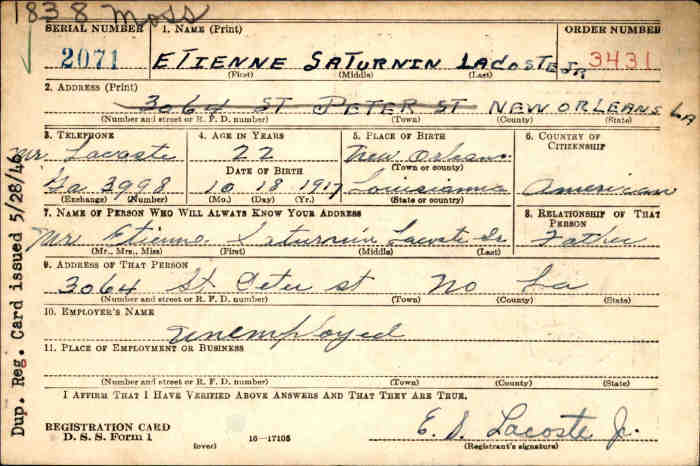 1838 Moss
SERIAL NUMBER 1. NAME (Print) ORDER NUMBER
2071 ETIENNE SATURNIN LACOSTE JR 3431
(First) (Middle) (Last)
2. ADDRESS (Print)
3064 ST PETER ST NEW ORLEANS LA
(Number and street or R. F. D. number) (Town) (County) (State)
3. TELEPHONE 4. AGE IN YEARS 5. PLACE OF BIRTH 6. COUNTRY OF CITIZENSHIP
Mr. Lacoste 22 New Orleans
DATE OF BIRTH (Town or county)
Ga 3998 10 18 1917 Louisianna American
(Exchange) (Number) (Mo.) (Day) (Yr.) (State or country)
7. NAME OF PERSON WHO WILL ALWAYS KNOW YOUR ADDRESS 8. RELATIONSHIP OF THAT PERSON
Mr Etienne Saturnin Lacoste Sr Father
(Mr., Mrs., Miss) (First) (Middle) (Last)
9. ADDRESS OF THAT PERSON
3064 St Peter st No La
(Number and street or R. F. D. number) (Town) (County) (State)
10. EMPLOYER'S NAME
unemployed
11. PLACE OF EMPLOYMENT OR BUSINESS
(Number and street or R. F. D. number) (Town) (County) (State)
I AFFIRM THAT I HAVE VERIFIED ABOVE ANSWERS AND THAT THEY ARE TRUE.
REGISTRATION CARD
D. S. S. Form 1 (over) 16-17105
E. S. Lacoste Jr.
(Registrant's signature)
Dup. Reg. Card issued 5/28/46